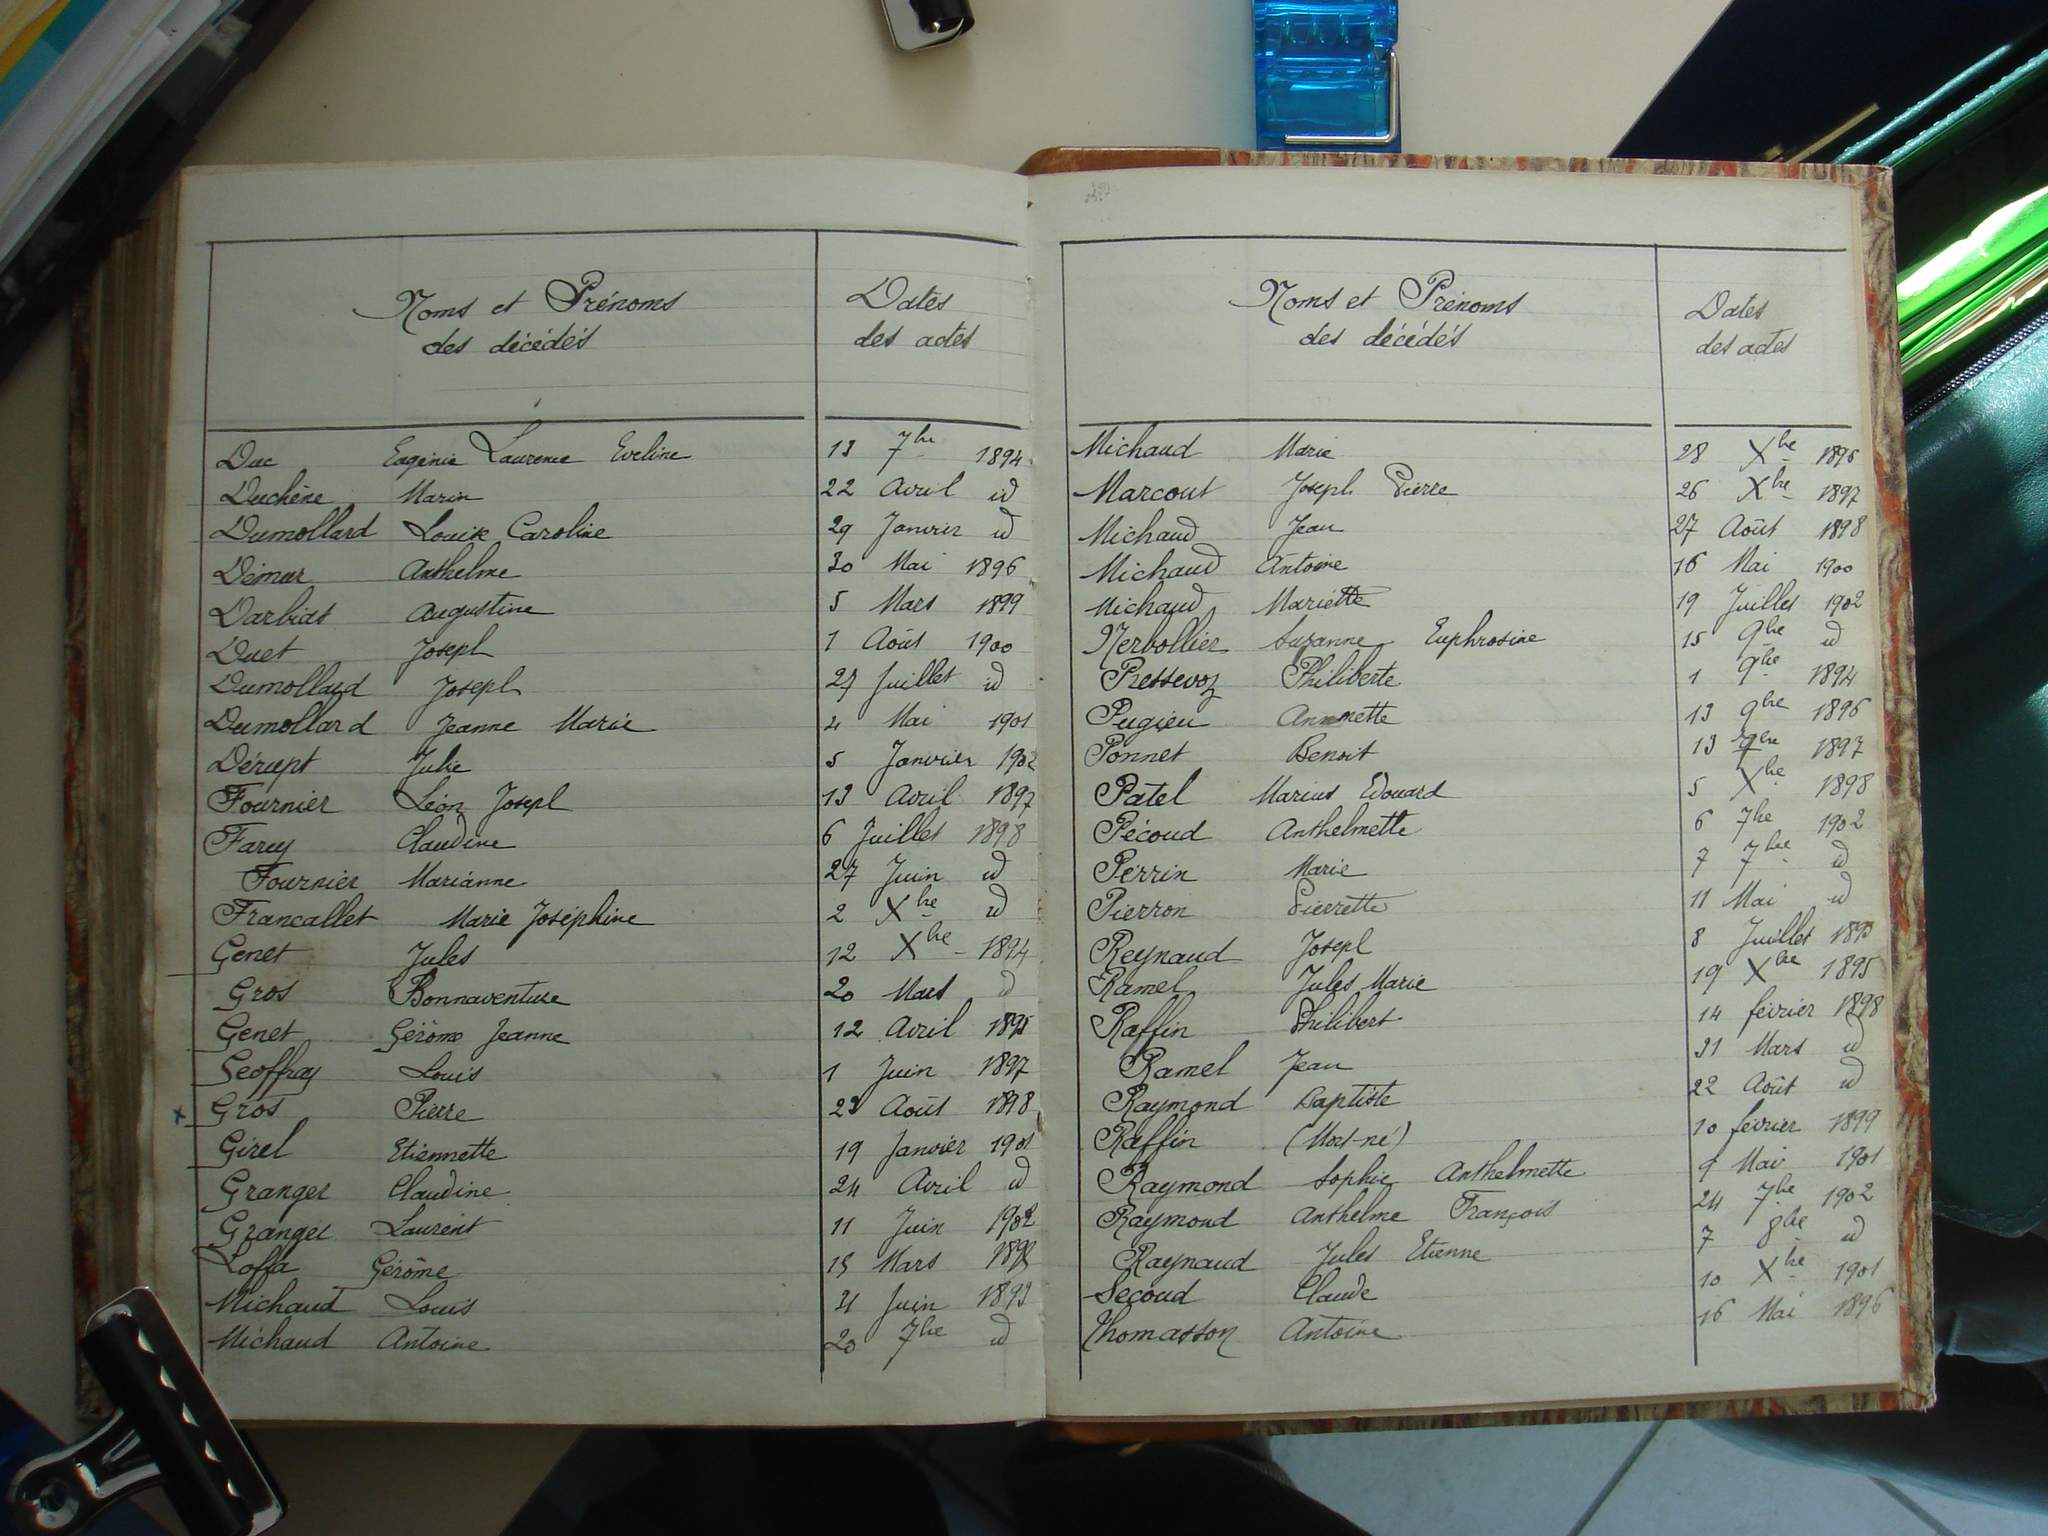 Noms et Prénoms
des décédés
Dates
des actes
Duc Eugénie Laurence Eveline 13 7bre 1894
Duchêne Marin 22 Avril id
Dumollard Louise Caroline 29 Janvier id
Démur Anthelme 30 Mai 1896
Darbiat Augustine 5 Mars 1899
Duet Joseph 1 Août 1900
Dumollard Joseph 27 Juillet id
Dumollard Jeanne Marie 4 Mai 1901
Dérupt Julie 5 Janvier 1902
Fournier Léon Joseph 13 Avril 1897
Farcy Claudine 6 Juillet 1898
Fournier Marianne 27 Juin id
Francallet Marie Joséphine 2 Xbre id
Genet Jules 12 Xbre 1894
Gros Bonnaventure 20 Mars id
Genet Gérôme Jeanne 12 Avril 1895
Geoffray Louis 1 Juin 1897
x Gros Pierre 23 Août 1898
Girel Etiennette 19 Janvier 1901
Granger Claudine 24 Avril id
Granger Laurent 11 Juin 1902
Loffa Gérôme 15 Mars
Michaud Louis 31 Juin 1893
Michaud Antoine 20 7bre id
Noms et Prénoms
des décédés
Dates
des actes
Michaud Marie 28 Xbre 1896
Marcout Joseph Pierre 26 Xbre 1897
Michaud Jean 27 Août 1898
Michaud Antoine 16 Mai 1900
Michaud Mariette 19 Juillet 1902
Nerbollier Suzanne Euphrosine 15 9bre id
Pressevoz Philiberte 1 9bre 1894
Pugieu Annette 13 9bre 1896
Ponnet Benoit 13 1897
Patel Marius Edouard 5 Xbre 1898
Pécoud Anthelmette 6 7bre 1902
Perrin Marie 7 7bre id
Pierron Pierrette 11 Mai id
Reynaud Joseph 8 Juillet 1893
Ramel Jules Marie 19 Xbre 1895
Raffin Philibert 14 février 1898
Ramel Jean 31 Mars id
Raymond Baptiste 22 Août id
Raffin (Mort-né) 10 février 1899
Raymond Sophie Anthelmette 9 Mai 1901
Raymond Anthelme François 24 7bre 1902
Raynaud Jules Etienne 7 8bre id
Secoud Claude 10 Xbre 1901
Thomasson Antoine 16 Mai 1896